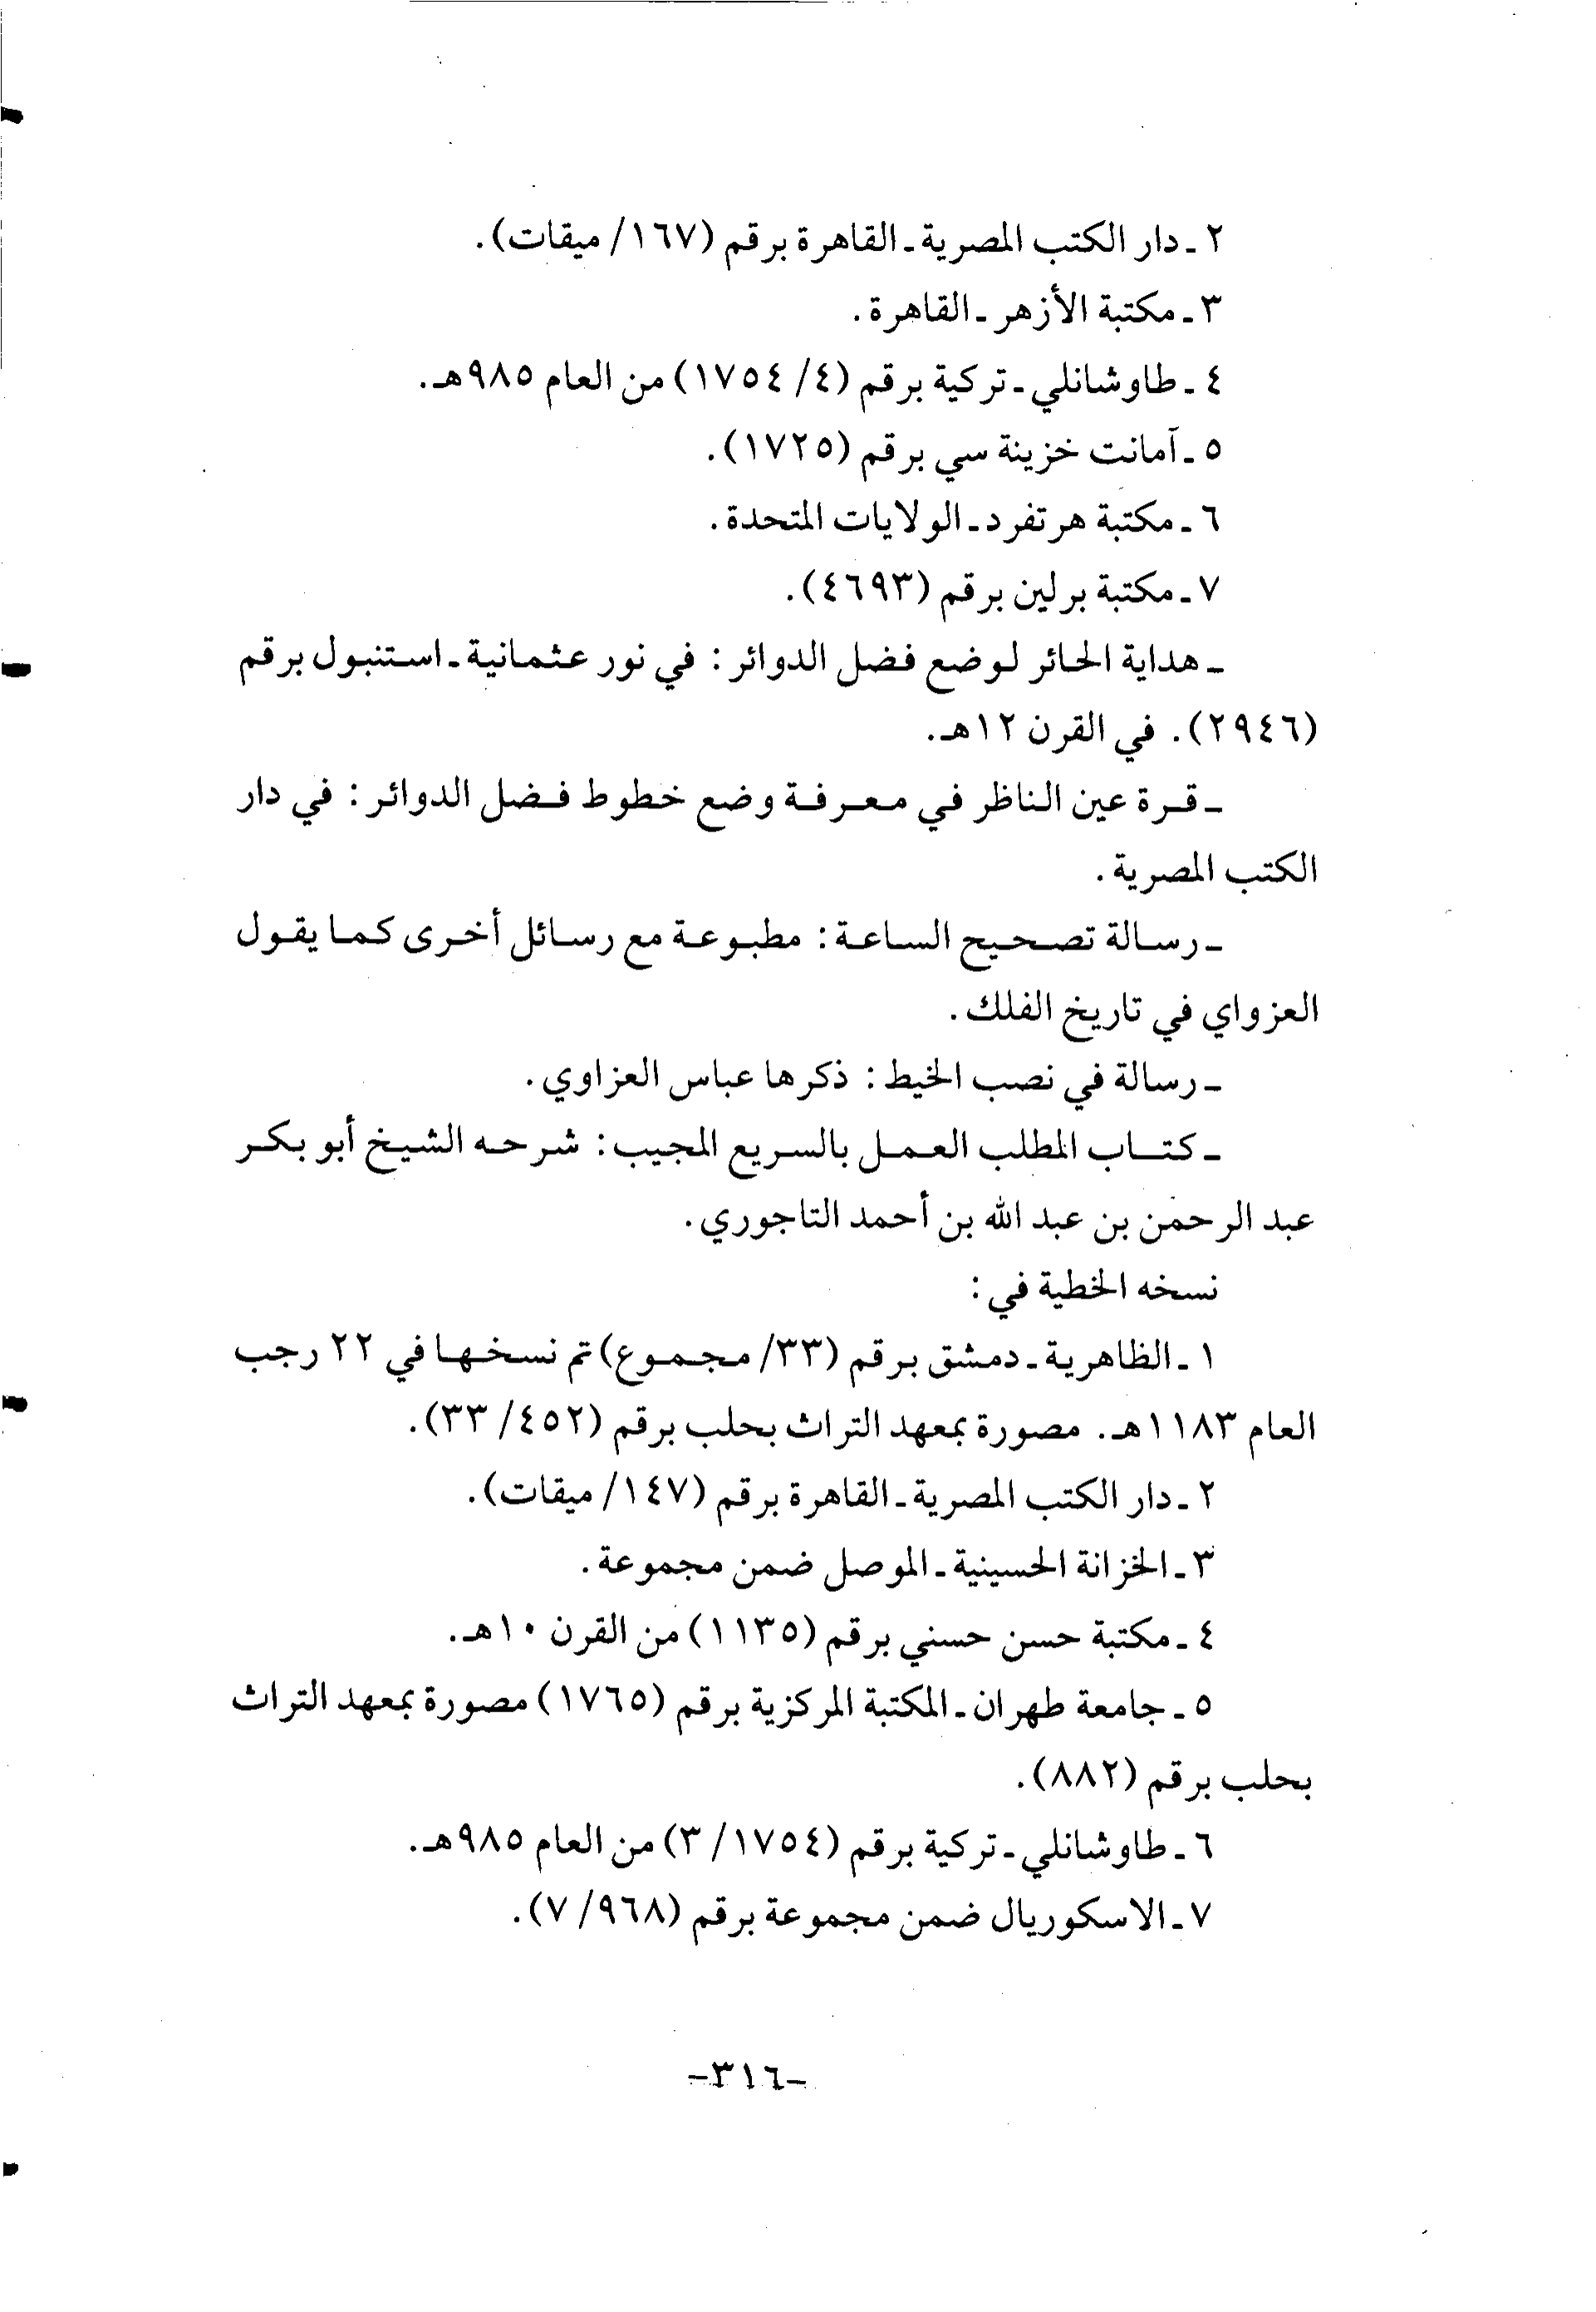 ٢ ـ دار الكتب المصرية ـ القاهرة برقم (١٦٧/ ميقات).
٣ ـ مكتبة الأزهر ـ القاهرة.
٤ ـ طاوشانلي ـ تركية برقم (٤/ ١٧٥٤) من العام ٩٨٥هـ.
٥ ـ آمانت خزينة سي برقم (١٧٢٥).
٦ ـ مكتبة هرتفرد ـ الولايات المتحدة.
٧ ـ مكتبة برلين برقم (٤٦٩٣).
ـ هداية الحائر لوضع فضل الدوائر: في نور عثمانية ـ استنبول برقم
(٢٩٤٦). في القرن ١٢هـ.
ـ قرة عين الناظر في معرفة وضع خطوط فضل الدوائر: في دار
الكتب المصرية.
ـ رسالة تصحيح الساعة: مطبوعة مع رسائل أخرى كما يقول
العزواي في تاريخ الفلك.
ـ رسالة في نصب الخيط: ذكرها عباس العزاوي.
ـ كتاب المطلب العمل بالسريع المجيب: شرحه الشيخ أبو بكر
عبد الرحمن بن عبد الله بن أحمد التاجوري.
نسخه الخطية في:
١ ـ الظاهرية ـ دمشق برقم (٣٣/ مجموع) تم نسخها في ٢٢ رجب
العام ١١٨٣هـ. مصورة بمعهد التراث بحلب برقم (٤٥٢/ ٣٣).
٢ ـ دار الكتب المصرية ـ القاهرة برقم (١٤٧/ ميقات).
٣ ـ الخزانة الحسينية ـ الموصل ضمن مجموعة.
٤ ـ مكتبة حسن حسني برقم (١١٣٥) من القرن ١٠هـ.
٥ ـ جامعة طهران ـ المكتبة المركزية برقم (١٧٦٥) مصورة بمعهد التراث
بحلب برقم (٨٨٢).
٦ ـ طاوشانلي ـ تركية برقم (١٧٥٤/ ٣) من العام ٩٨٥هـ.
٧ ـ الاسكوريال ضمن مجموعة برقم (٩٦٨/ ٧).
-٣١٦-